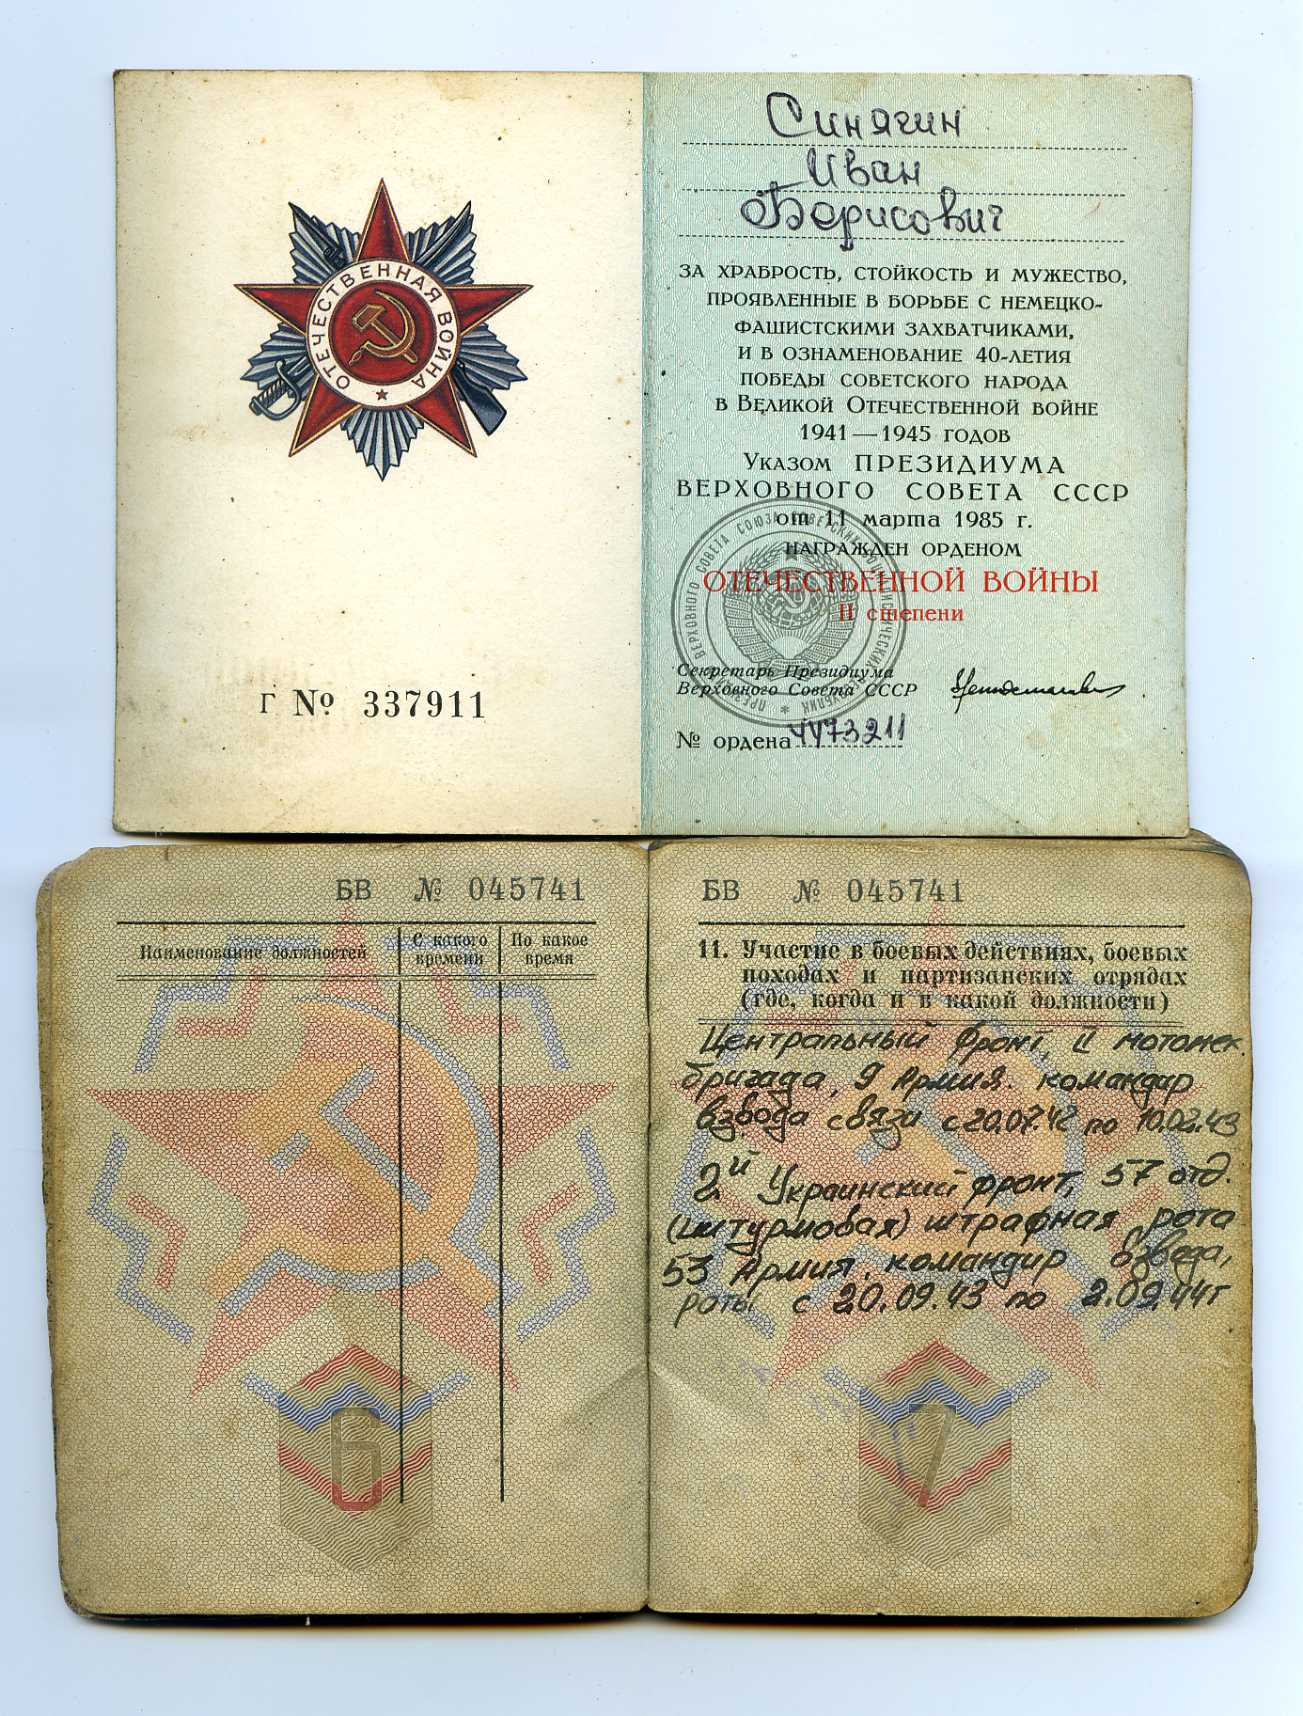 ОТЕЧЕСТВЕННАЯ ВОЙНА
Г № 337911
Синягин
Иван
Борисович
ЗА ХРАБРОСТЬ, СТОЙКОСТЬ И МУЖЕСТВО,
ПРОЯВЛЕННЫЕ В БОРЬБЕ С НЕМЕЦКО-
ФАШИСТСКИМИ ЗАХВАТЧИКАМИ,
И В ОЗНАМЕНОВАНИЕ 40-ЛЕТИЯ
ПОБЕДЫ СОВЕТСКОГО НАРОДА
В ВЕЛИКОЙ ОТЕЧЕСТВЕННОЙ ВОЙНЕ
1941—1945 ГОДОВ
УКАЗОМ ПРЕЗИДИУМА
ВЕРХОВНОГО СОВЕТА СССР
от 11 марта 1985 г.
НАГРАЖДЕН ОРДЕНОМ
ОТЕЧЕСТВЕННОЙ ВОЙНЫ
II степени
Секретарь Президиума
Верховного Совета СССР
№ ордена 4473211
БВ № 045741
Наименование должностей
С какого времени
По какое время
6
БВ № 045741
11. Участие в боевых действиях, боевых
походах и партизанских отрядах
(где, когда и в какой должности)
Центральный фронт, II мотомех.
бригада, 9 Армия. командир
взвода связи с 20.07.42 по 10.02.43
2й Украинский фронт, 57 отд.
(штурмовая) штрафная рота
53 Армия, командир взвода,
роты с 20.09.43 по 2.09.44г
7